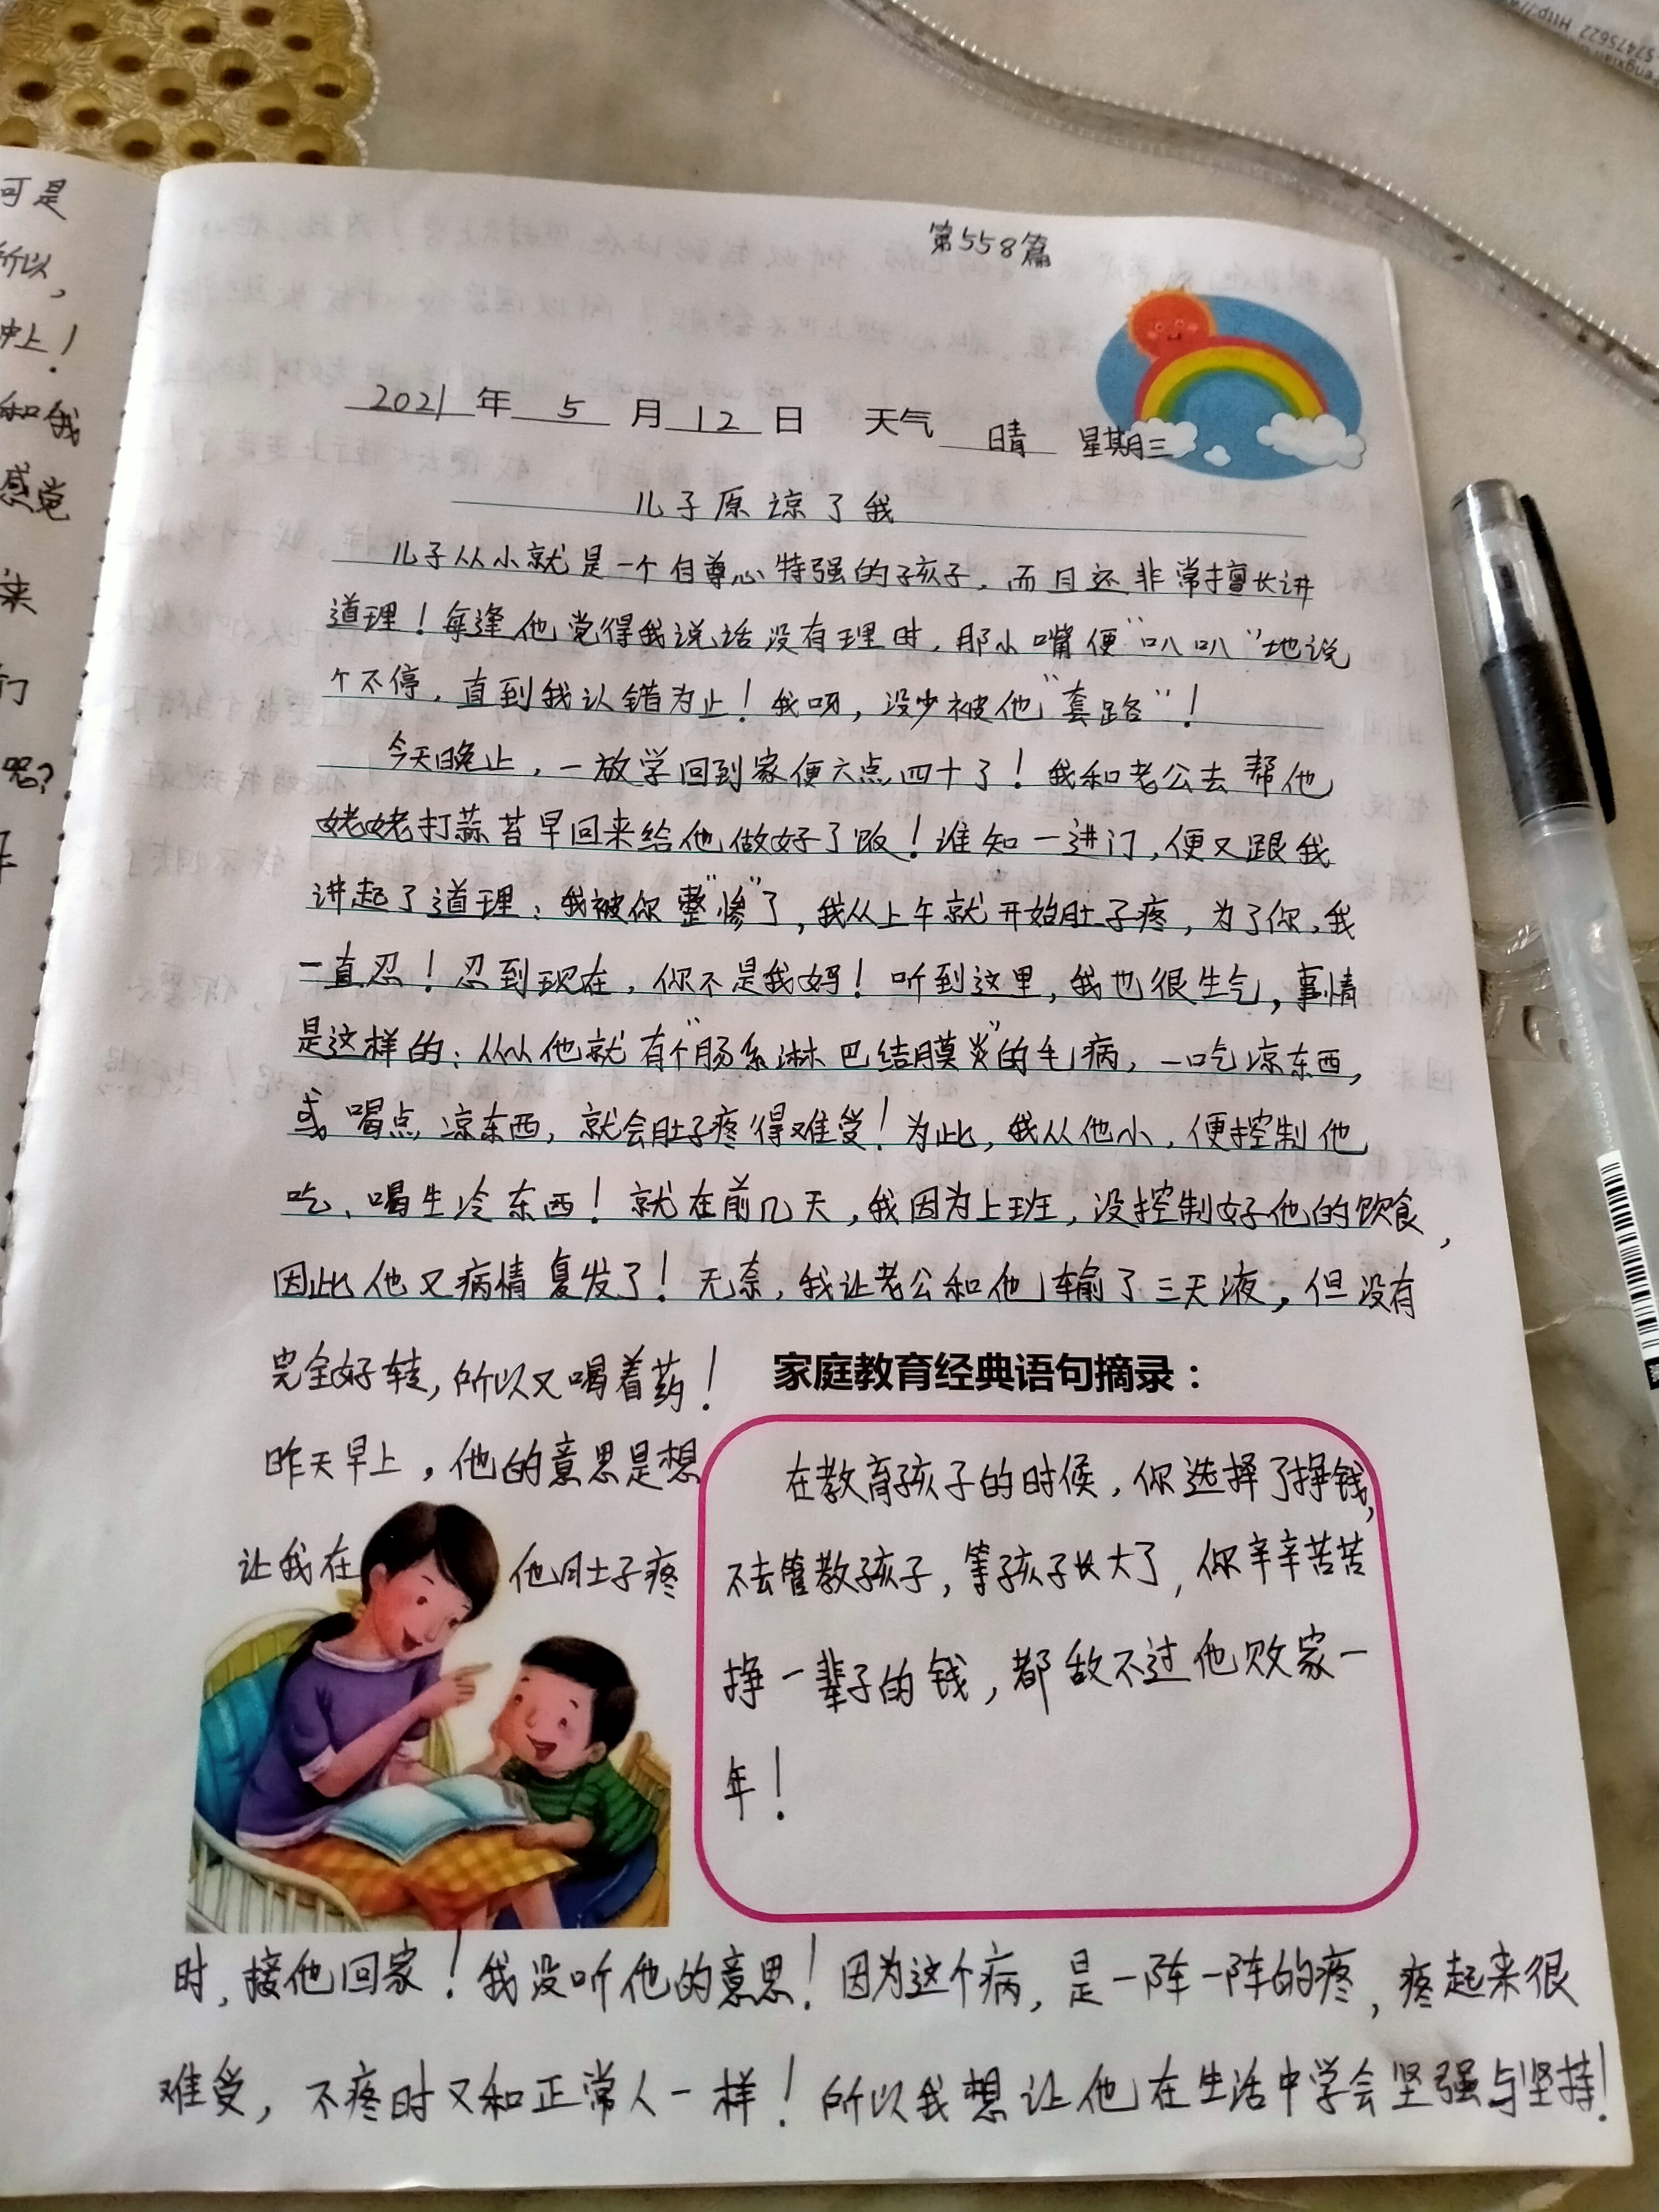 可是
所以，
冲上！
和我
感觉
来
们
呢？
第558篇
2021年 5月12日 天气 晴 星期三
儿子原谅了我
儿子从小就是一个自尊心特强的孩子，而且还非常擅长讲
道理！每逢他觉得我说话没有理时，那小嘴便“叭叭”地说
个不停，直到我认错为止！我呀，没少被他“套路”！
今天晚上，一放学回到家便六点四十了！我和老公去帮他
姥姥打蒜苔早回来给他做好了饭！谁知一进门，便又跟我
讲起了道理：我被你整“惨”了，我从上午就开始肚子疼，为了你，我
一直忍！忍到现在，你不是我妈！听到这里，我也很生气，事情
是这样的：从小他就有个“肠系淋巴结膜炎”的毛病，一吃凉东西，
或喝点凉东西，就会肚子疼得难受！为此，我从他小，便控制他
吃、喝生冷东西！就在前几天，我因为上班，没控制好他的饮食，
因此他又病情复发了！无奈，我让老公和他输了三天液，但没有
完全好转，所以又喝着药！
昨天早上，他的意思是想
让我在他肚子疼
家庭教育经典语句摘录：
在教育孩子的时候，你选择了挣钱，
不去管教孩子，等孩子长大了，你辛辛苦苦
挣一辈子的钱，都敌不过他败家一
年！
时，接他回家！我没听他的意思！因为这个病，是一阵一阵的疼，疼起来很
难受，不疼时又和正常人一样！所以我想让他在生活中学会坚强与坚持！